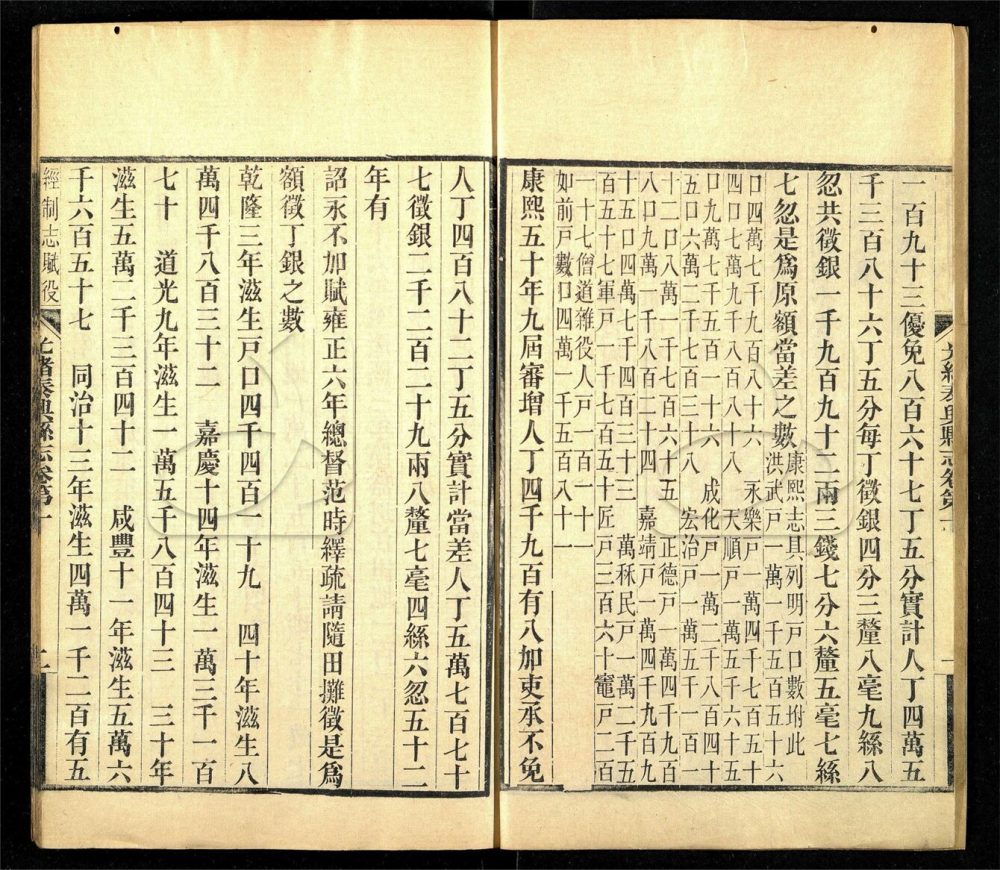 一百九十三優免八百六十七丁五分實計人丁四萬五
千三百八十六丁五分每丁徵銀四分三釐八毫九絲八
忽共徵銀一千九百九十二兩三錢七分六釐五毫七絲
七忽是爲原額當差之數
康熙志具列明戶口數坿此
洪武戶一萬一千五百五十六
口四萬七千九百八十六 永樂戶一萬四千七百五十
四口七萬九千八百八十八 天順戶一萬五千六十五
口九萬七千五百一十六 成化戶一萬二千八百四十
五口六萬二千七百三十八 宏治戶一萬五千一百一
十二口八萬一千七百六十五 正德戶一萬四千九百
八口九萬一千八百二十四 嘉靖戶一萬四千九百九
十五口四萬七千四百三十三 萬秝民戶一萬二千五
百五十七軍戶一千七百五十匠戶三百六十竈戶二百
一十七僧道雜役人戶一百一十一
如前戶數口四萬一千五百八十一
康熙五十年九屆審增人丁四千九百有八加吏承不免
光緒泰興縣志卷第十
一
人丁四百八十二丁五分實計當差人丁五萬七百七十
七徵銀二千二百二十九兩八釐七毫四絲六忽五十二
年有
詔永不加賦雍正六年總督范時繹疏請隨田攤徵是爲
額徵丁銀之數
乾隆三年滋生戶口四千四百一十九 四十年滋生八
萬四千八百三十二 嘉慶十四年滋生一萬三千一百
七十 道光九年滋生一萬五千八百四十三 三十年
滋生五萬二千三百四十二 咸豐十一年滋生五萬六
千六百五十七 同治十三年滋生四萬一千二百有五
經制志賦役
光緒泰興縣志卷第十
二